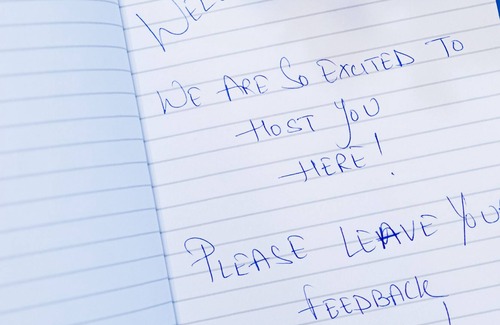 WE ARE SO EXCITED TO
HOST YOU
HERE!
PLEASE LEAVE YOU
FEEDBACK
!